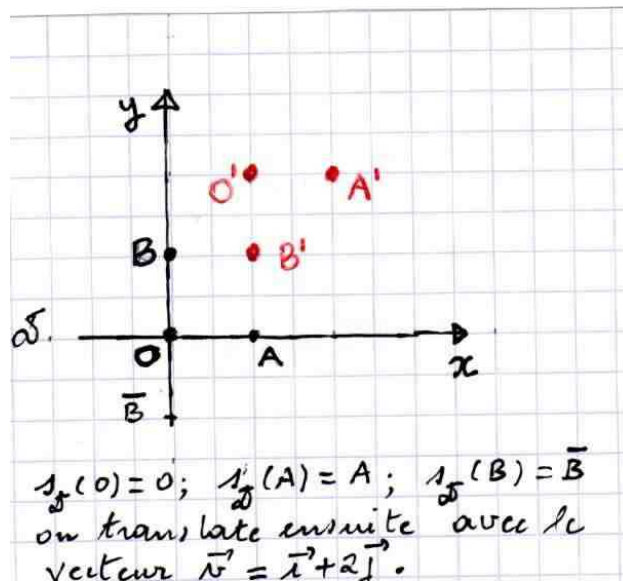 y
O' A'
B B'
𝒟
O A x
B̅
s_𝒟(O) = O; s_𝒟(A) = A; s_𝒟(B) = B̅
on translate ensuite avec le
vecteur v⃗ = i⃗ + 2j⃗.